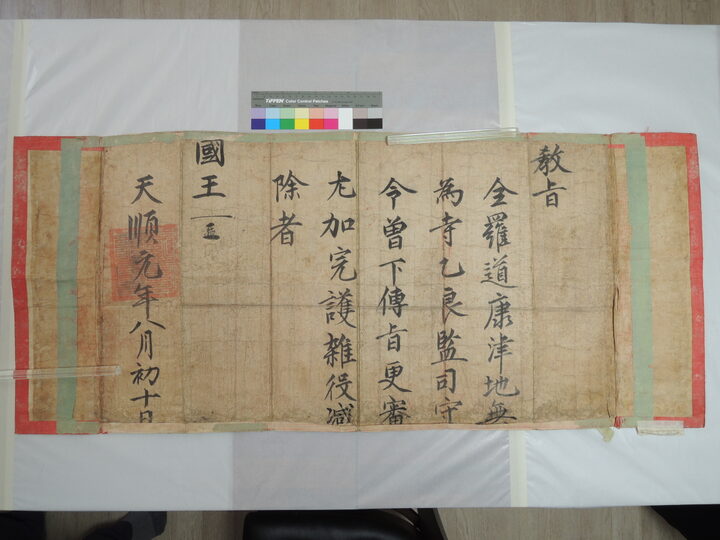 TIFFEN Color Control Patches
教旨
全羅道康津地無
為寺乙良監司守
令曾下傳旨更審
尤加完護雜役減
除者
國王
天順元年八月初十日